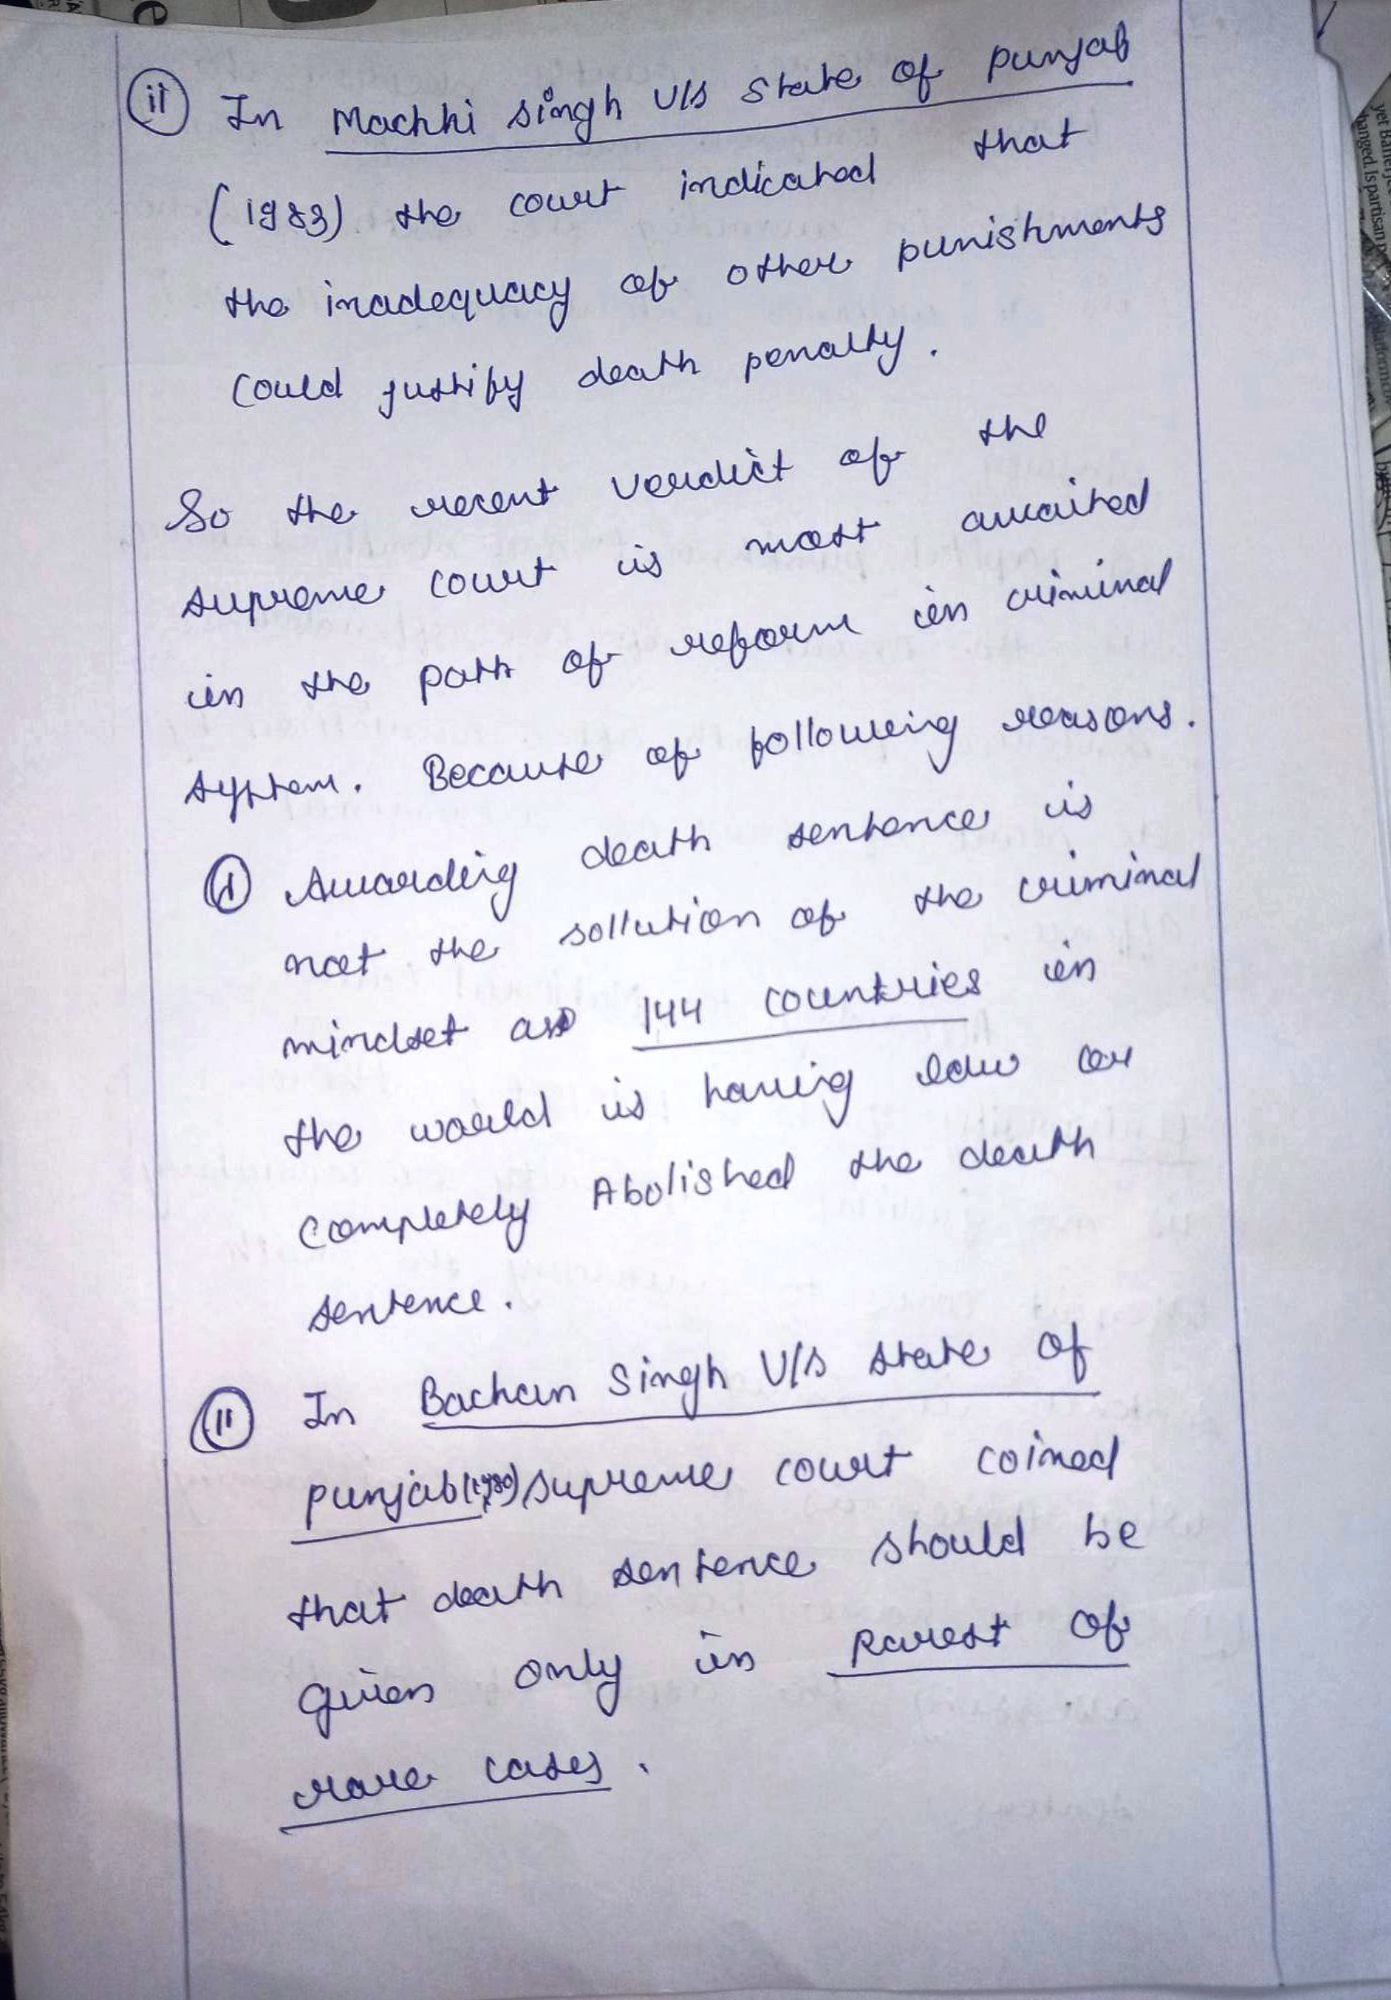 (ii) In Machhi Singh v/s State of Punjab
(1983) the court indicated that
the inadequacy of other punishments
could justify death penalty.
So the recent verdict of the
supreme court is most awaited
in the path of reform in criminal
system. Because of following reasons.
(i) Awarding death sentence is
not the sollution of the criminal
mindset as 144 countries in
the world is having law or
completely Abolished the death
sentence.
(ii) In Bachan Singh V/s State of
Punjab (1980) Supreme court coined
that death sentence should be
given only in Rarest of
rare cases.